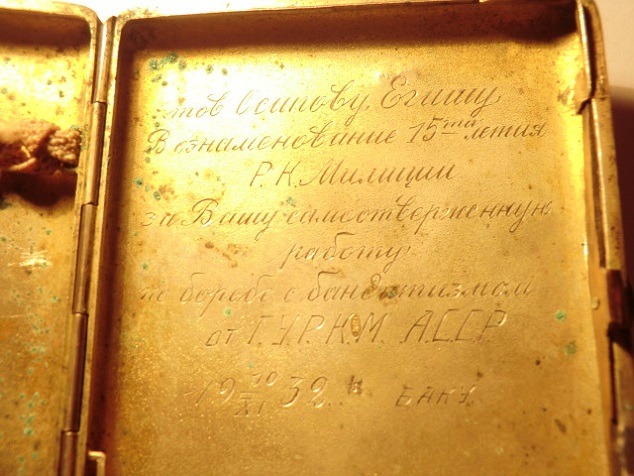 тов Осипову Егишу
В ознаменование 15тилетия
Р.К.Милиции
за Вашу самоотверженную
работу
по борьбе с бандитизмом
от Г.У.Р.К.М. А.С.С.Р.
19 10/XI 32. г. БАКУ.